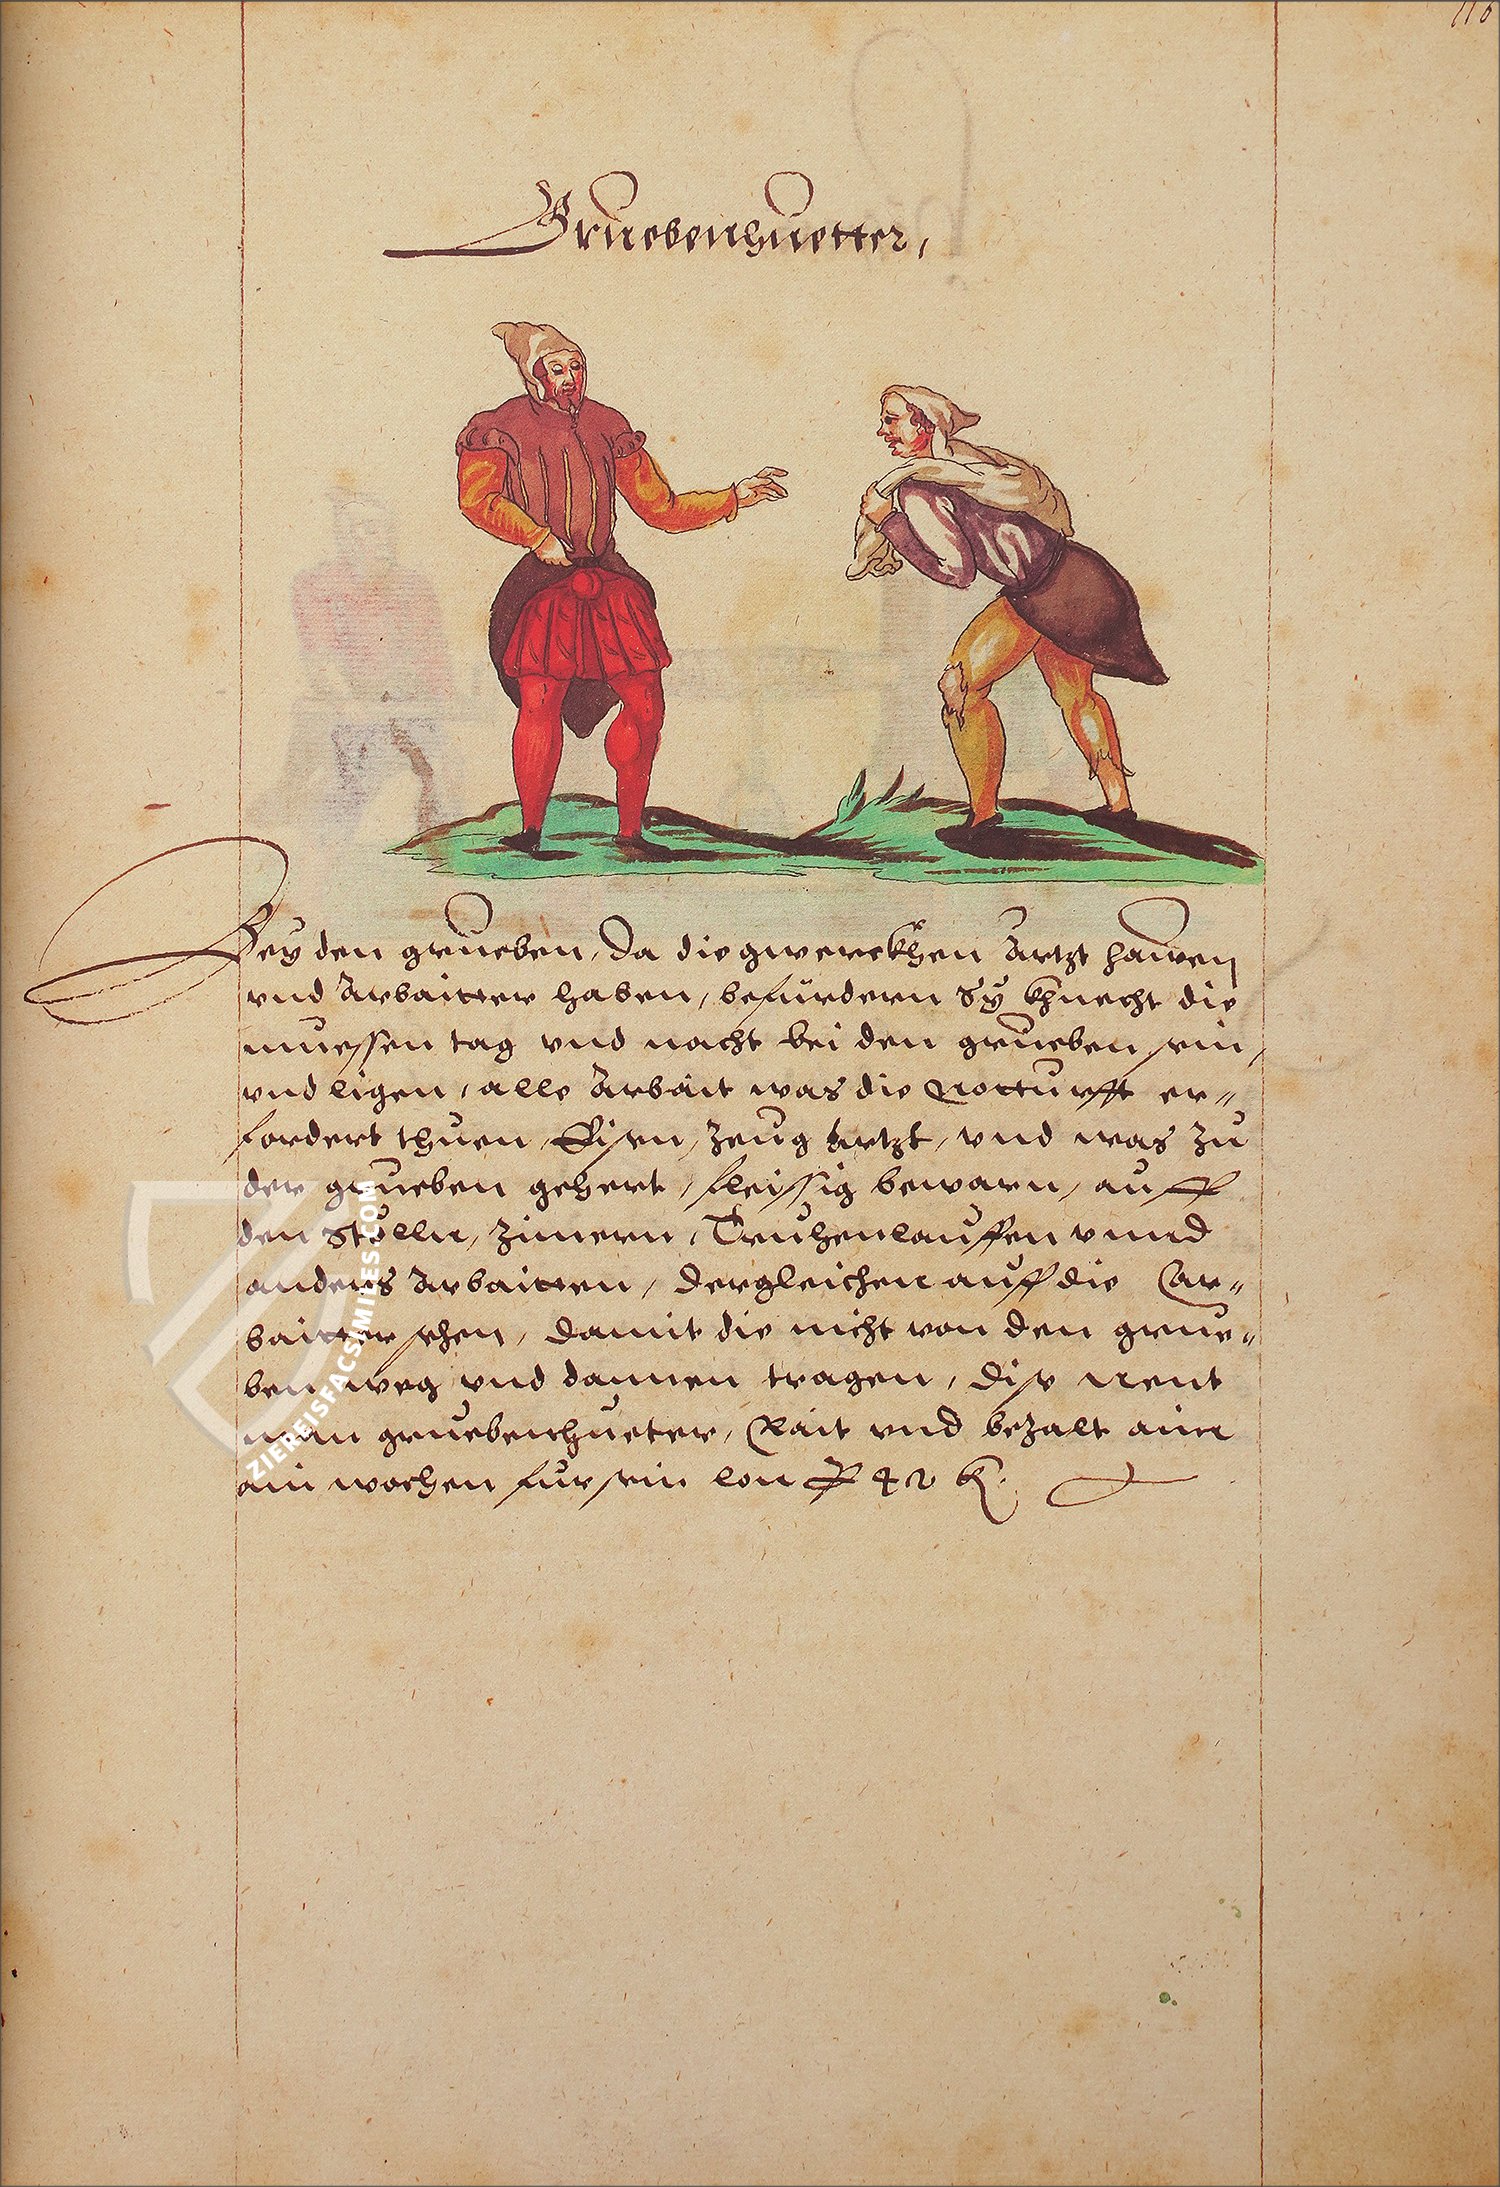 116
Gruebenhuetter,
Bey den grueben, Da die gwerckhen Ärtzt hawen
vnd Arbaitter haben, befürdern Sy khnecht die
muessen tag vnd nacht bei den grueben sein,
vnd ligen, alle Arbait was die notturfft er-
fordert thuen, Eisen, Zeug Artzt, vnd was zu
der grueben gehert, fleissig bewarn, auff
den Stolln, Zimern, Truhenlauffen vnnd
anders Arbaitten, dergleichen auff die Ar-
baitter sehen, damit die nicht von den grue-
ben weg vnd dannen tragen, dise nent
man gruebenhueter, Rait vnd bezalt aim
ain wochen fur sein lon 42 k.
ZIEREISFACSIMILES.COM